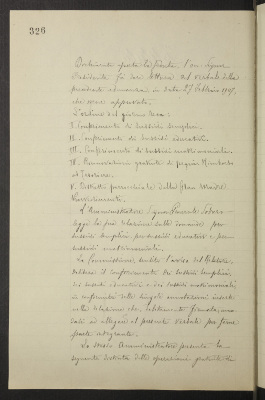 326
Dichiarata aperta la seduta, l'on. Signor
Presidente fa dare lettura del verbale della
precedente adunanza in data 27 Febbraio
che viene approvato.
L'ordine del giorno reca:
I. Conferimento di sussidi semplici.
II. Conferimento di sussidi educativi.
III. Conferimento di sussidi matrimoniali.
IV. gratuita di
al Tesoriere.
V.
L'Amministratore Signor
legge la sua relazione sulle domande per
sussidi semplici, per sussidi educativi e per
sussidi matrimoniali.
La Commissione, sentito l'avviso del Relatore,
delibera il conferimento dei sussidi semplici,
dei sussidi educativi e dei sussidi matrimoniali,
in conformità delle singole annotazioni inserite
nella relazione che, debitamente firmata,
allegarsi al presente verbale per farne
parte integrante.
Lo stesso Amministratore presenta la
seguente distinta delle operazioni gratuite